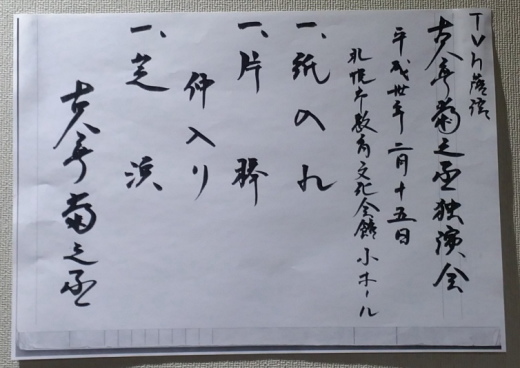 TVh
古今亭菊之丞独演会
平成卅年二月十五日
札幌市教育文化会館小ホール
一、紙入れ
一、片棒
仲入り
一、芝浜
古今亭菊之丞